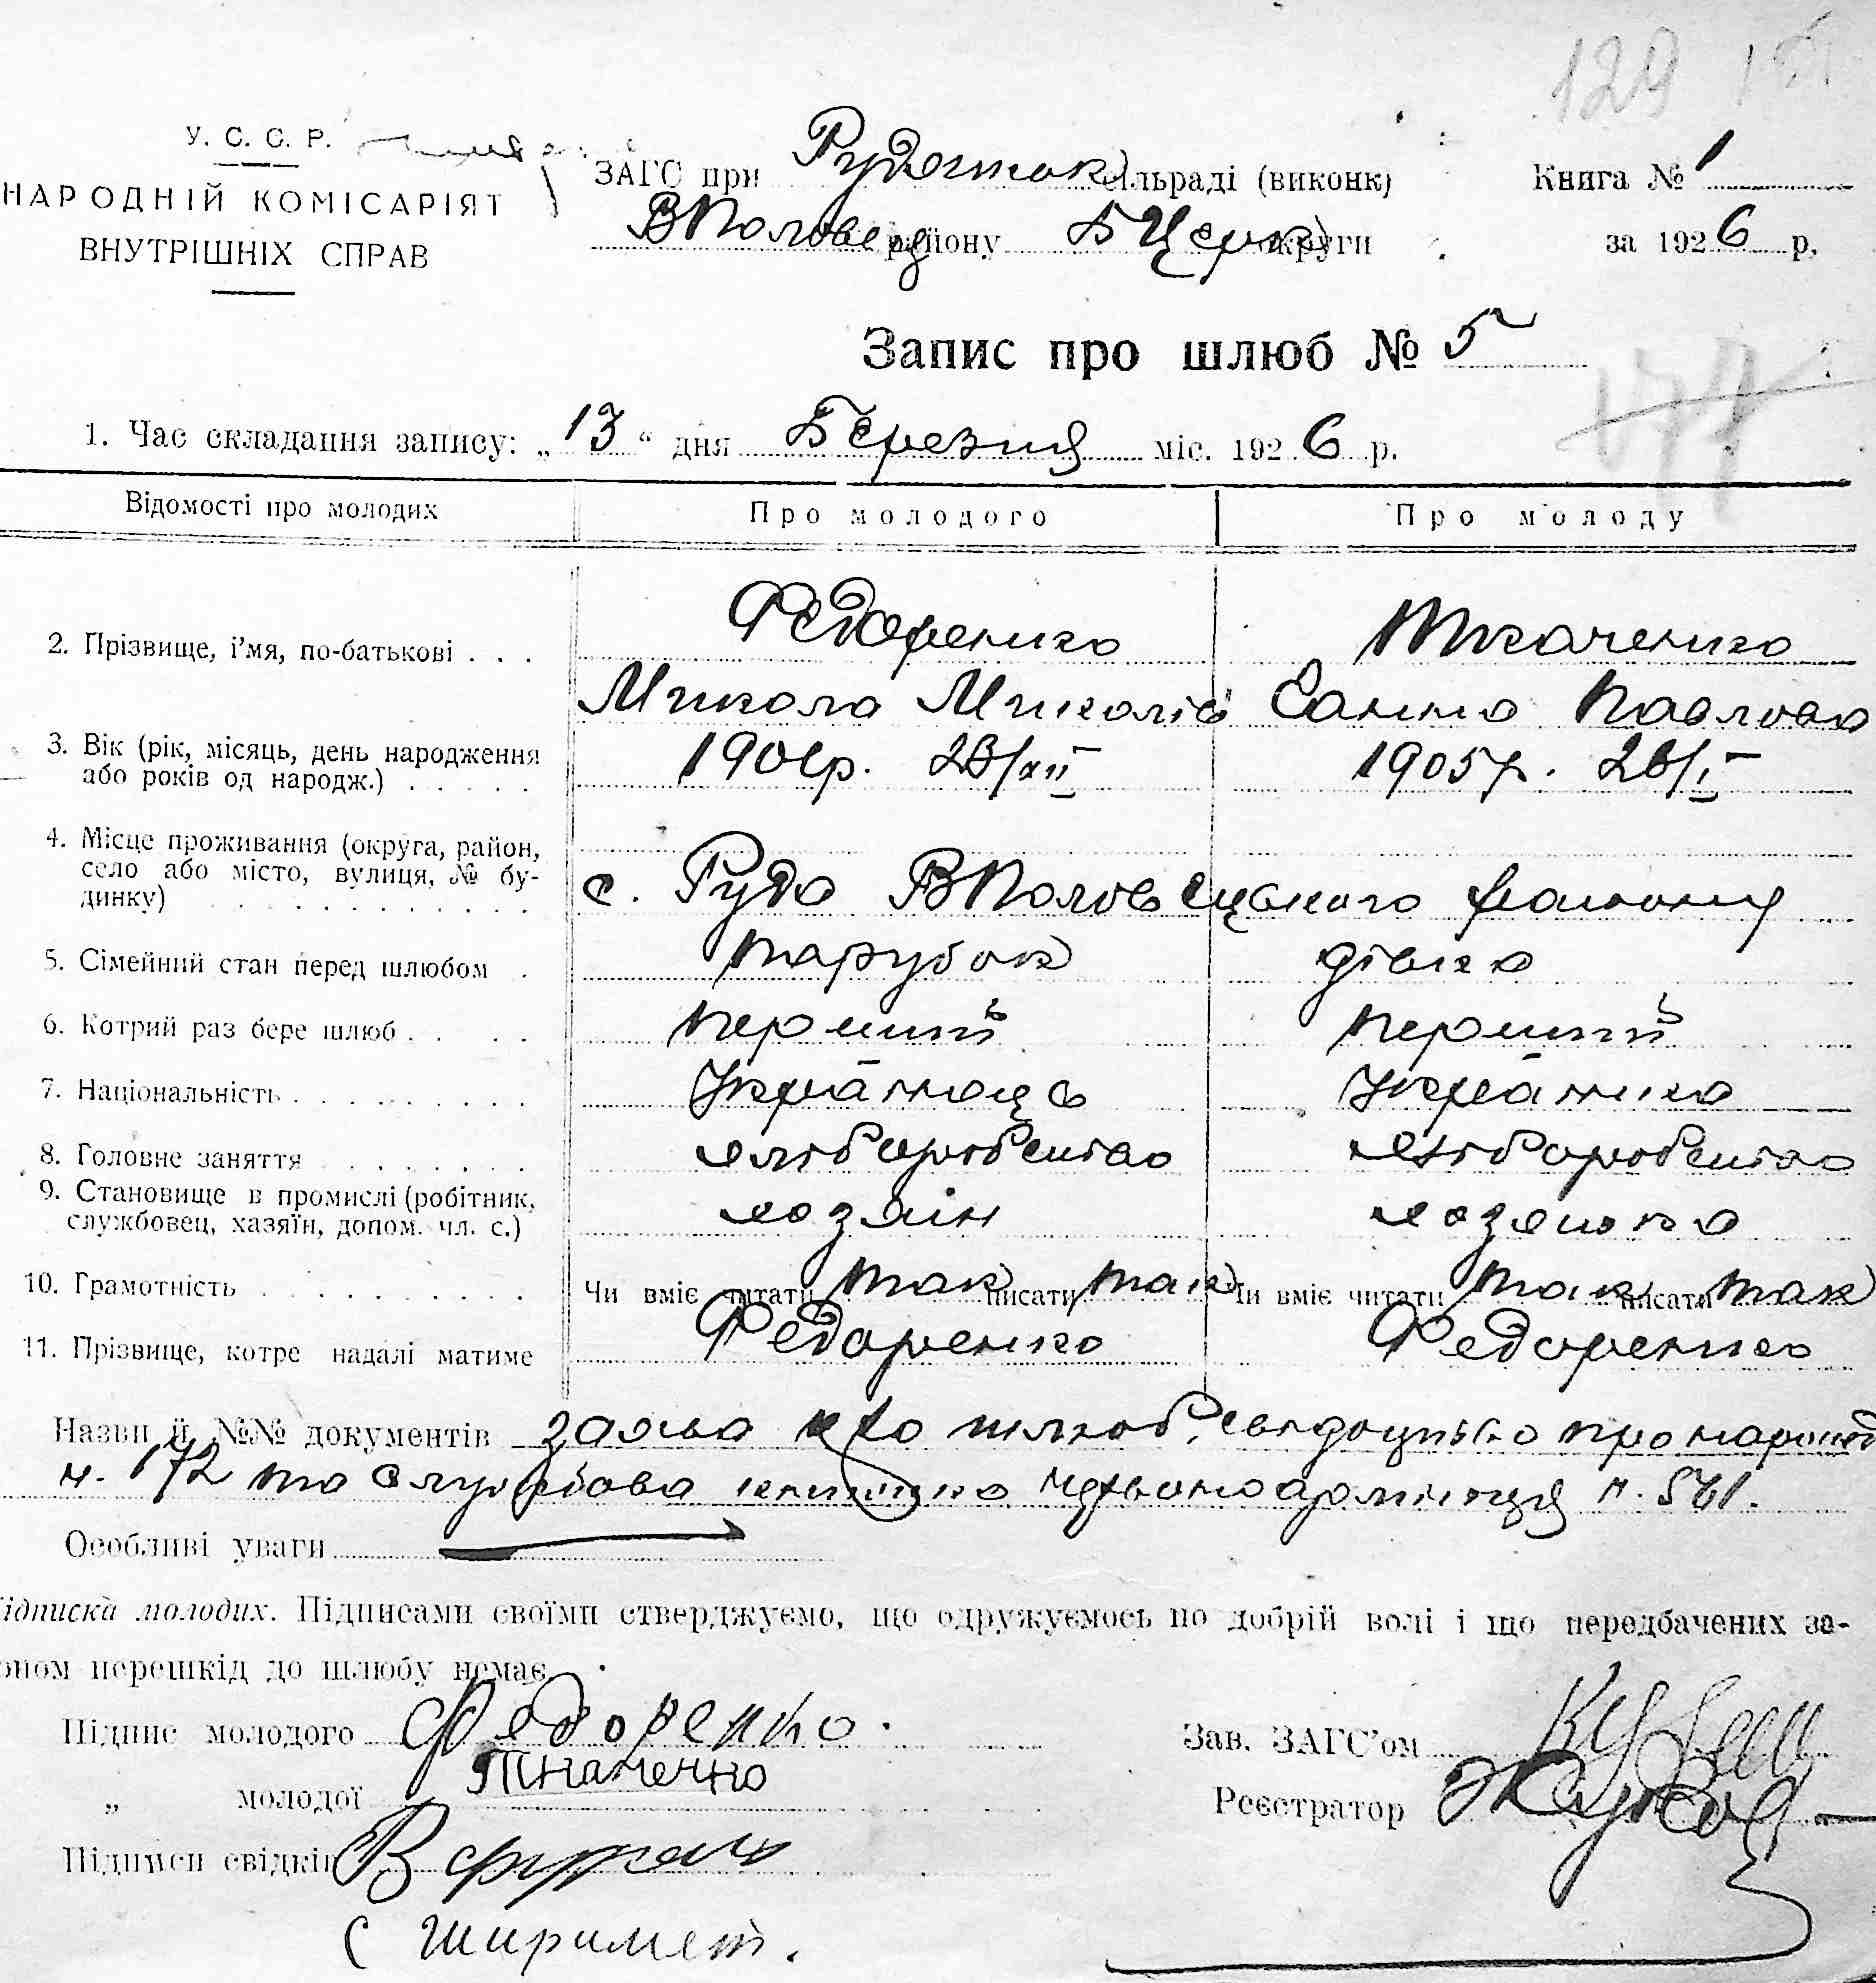 129
У. С. С. Р.
НАРОДНІЙ КОМІСАРІЯТ
ВНУТРІШНІХ СПРАВ
ЗАГС при Рудянськ сільраді (виконк)
ВПоловец району БЦерк округи
Книга № 1
за 1926 р.
Запис про шлюб № 5
177
1. Час складання запису: „13“ дня Березня міс. 1926 р.
Відомості про молодих Про молодого Про молоду
2. Прізвище, і'мя, по-батькові . . . Федоренко Ткаченко
Микола Миколів Ганна Павлова
3. Вік (рік, місяць, день народження або років од народж.) . . . . . 1901р. 23/XII 1905р. 26/I
4. Місце проживання (округа, район,
село або місто, вулиця, № бу-
динку) . . . . . . . . . . . с. Руда ВПоловецького району
5. Сімейний стан перед шлюбом . парубок дівка
6. Котрий раз бере шлюб . . . . перший перший
7. Національність . . . . . . . . . Українець Українка
8. Головне заняття . . . . . . . . хліборобство хліборобство
9. Становище в промислі (робітник,
службовец, хазяїн, допом. чл. с.) хозяін хозяйка
10. Грамотність . . . . . . . . . . Чи вміє читати так писати так Чи вміє читати так писати так
11. Прізвище, котре надалі матиме Федоренко Федоренко
Назви й №№ документів заява про шлюб, свидоцтво про народ
н. 172 та службова книжка червоноармійця н. 561.
Особливі уваги
ідписка молодих. Підписами своїми стверджуємо, що одружуємось по добрій волі і що передбачених за-
оном перешкід до шлюбу немає.
Підпис молодого Федоренко.
„ молодої Ткаченко
Підписи свідків
Зав. ЗАГС'ом
Реєстратор